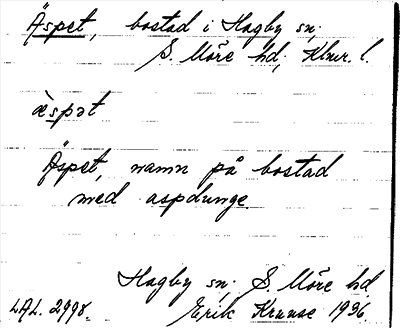 Äspet, bostad i Hagby sn;
S. Möre hd; Klmr. l.
æspət
Äspet, namn på bostad
med aspdunge.
Hagby sn; S. Möre hd
LAL. 2998. Erik Kruuse 1936.